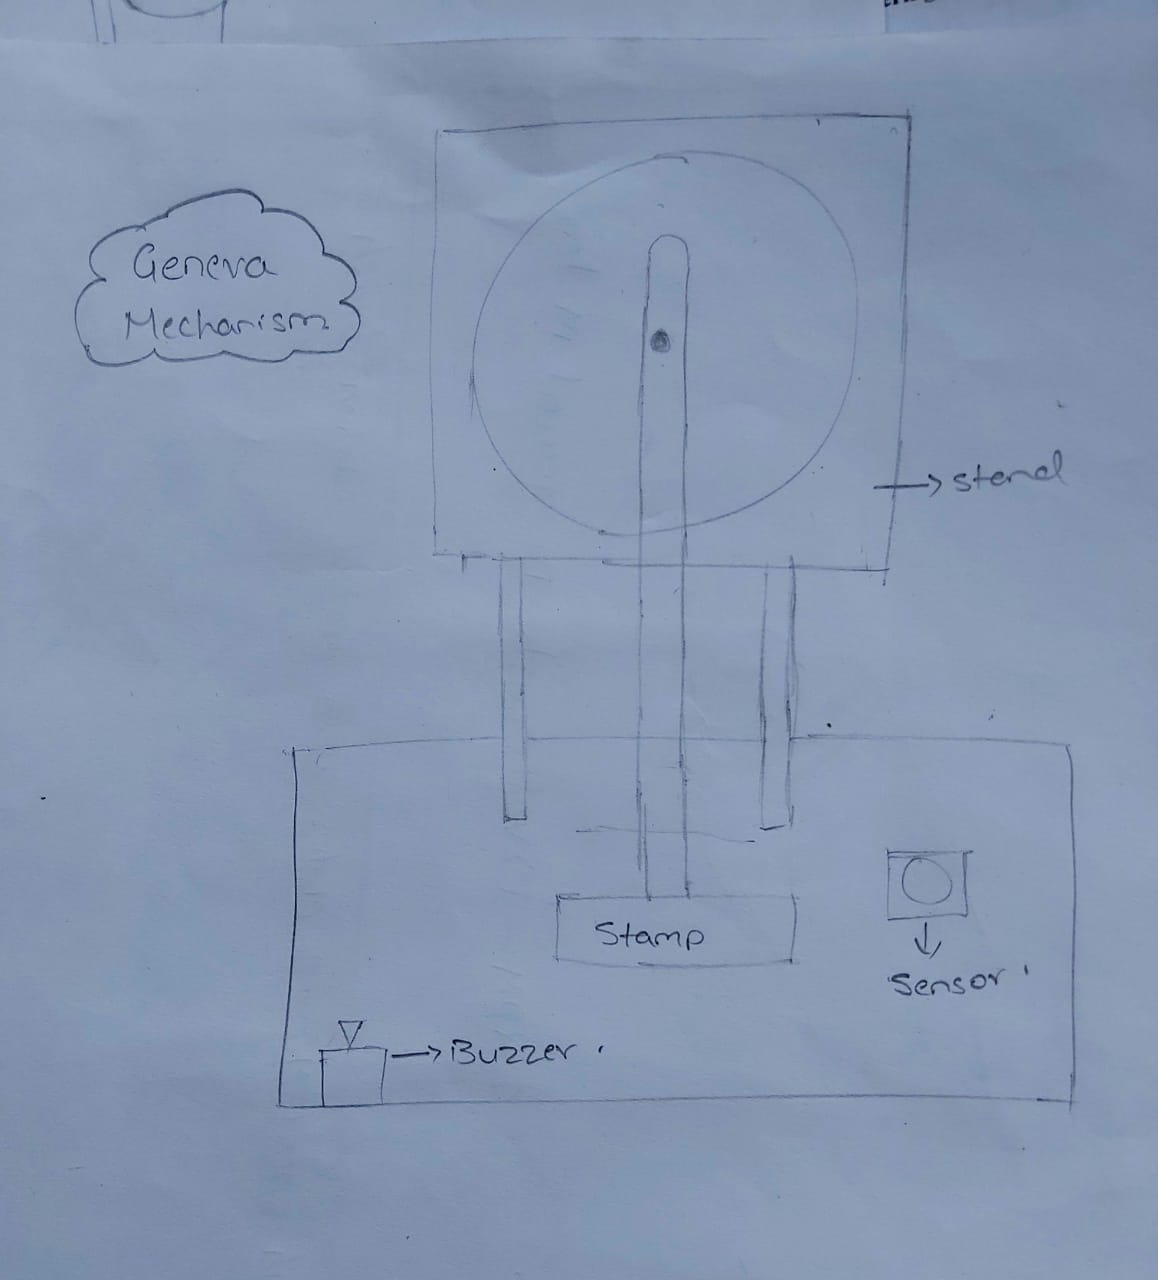 Geneva
Mechanism
stand
Stamp
Sensor
Buzzer